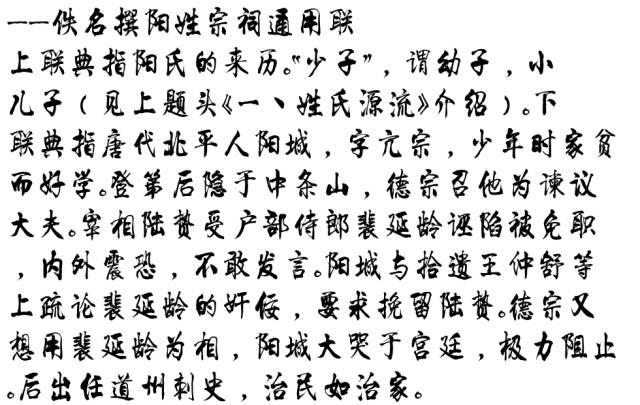 ——佚名撰阳姓宗祠通用联
上联典指阳氏的来历。“少子”，谓幼子，小
儿子（见上题头《一、姓氏源流》介绍）。下
联典指唐代北平人阳城，字亢宗，少年时家贫
而好学。登第后隐于中条山，德宗召他为谏议
大夫。宰相陆贽受户部侍郎裴延龄诬陷被免职
，内外震恐，不敢发言。阳城与拾遗王仲舒等
上疏论裴延龄的奸佞，要求挽留陆贽。德宗又
想用裴延龄为相，阳城大哭于宫廷，极力阻止
。后出任道州刺史，治民如治家。